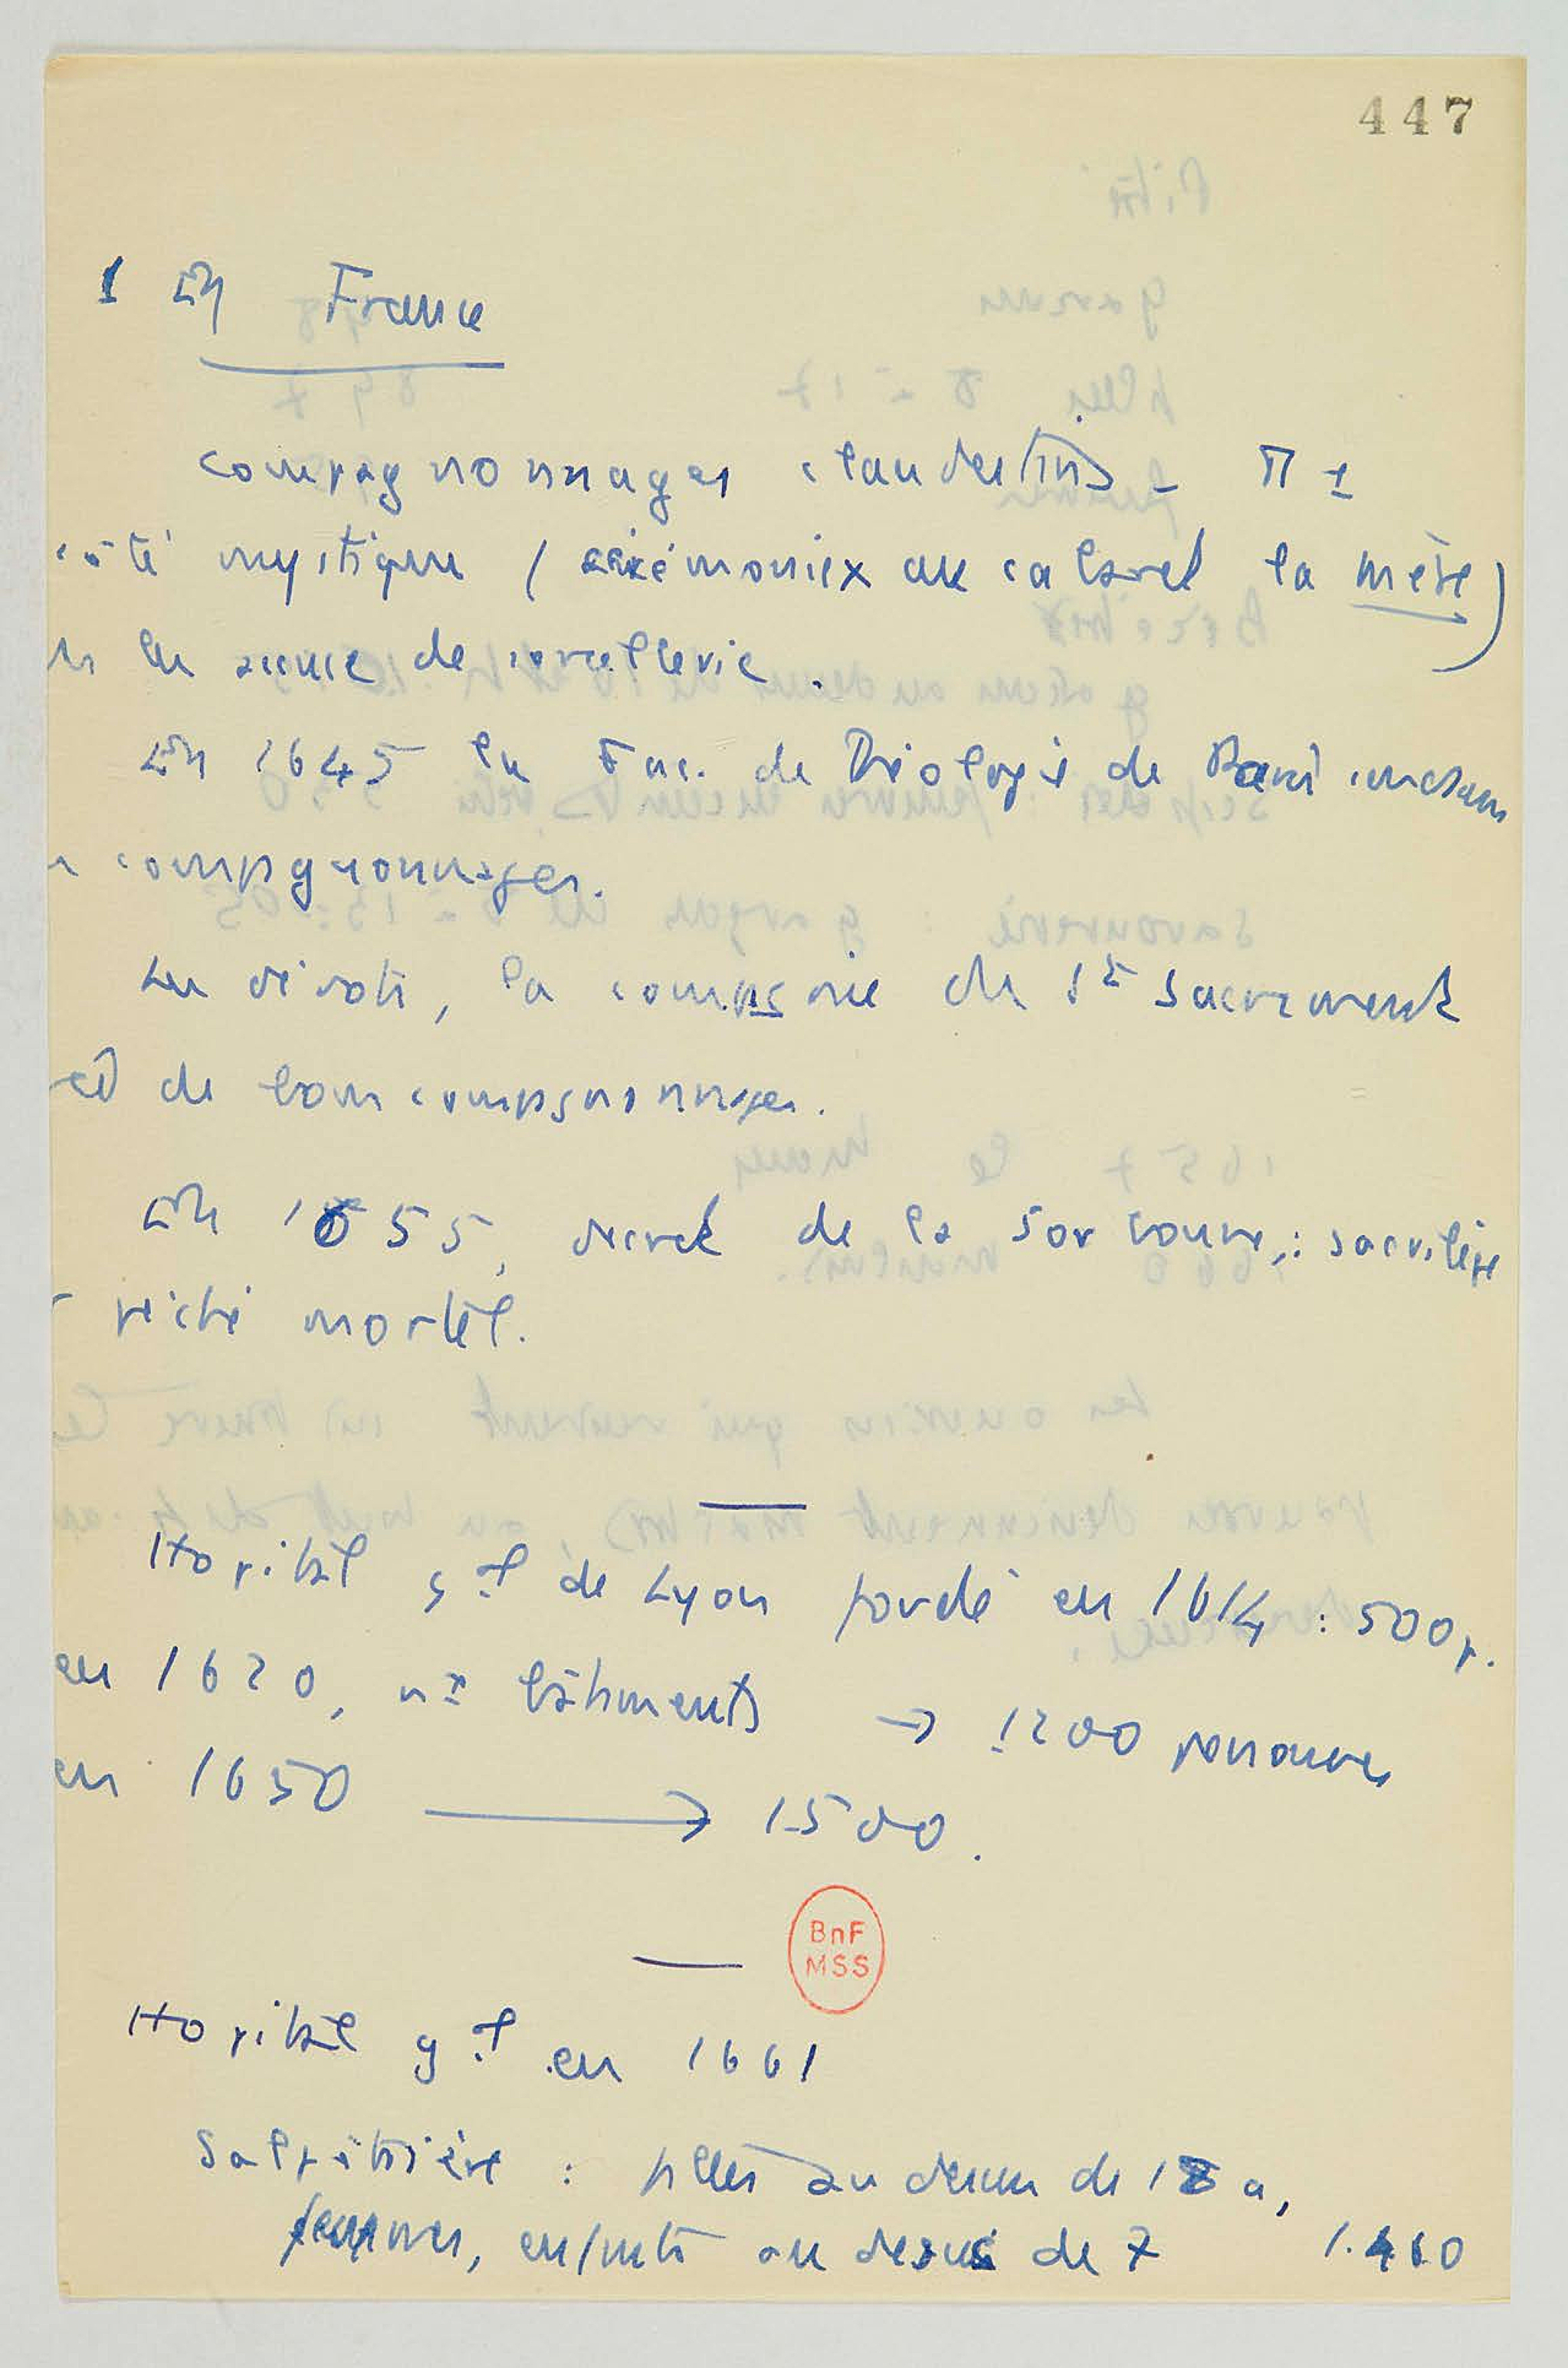 447
1 En France
compagnonnages clandestins - π ±
côté mystique (cérémoniex au cabaret la mère)
les accuse de sorcellerie.
En 1645 la Fac. de Théologie de Paris condamne
compagnonnages.
Les dévots, la compagnie du St Sacrement
de bons compagnonnages.
En 1655, décret de la Sorbonne : sacrilège
péché mortel.
Hopital gal de Lyon fondé en 1614 : 500 p.
en 1620, nx bâtiments → 1200 personnes
en 1650 → 1500.
BnF
MSS
Hopital gal en 1661
Salpêtrière : filles au dessus de a,
femmes, enfants au dessus de 7 1.460